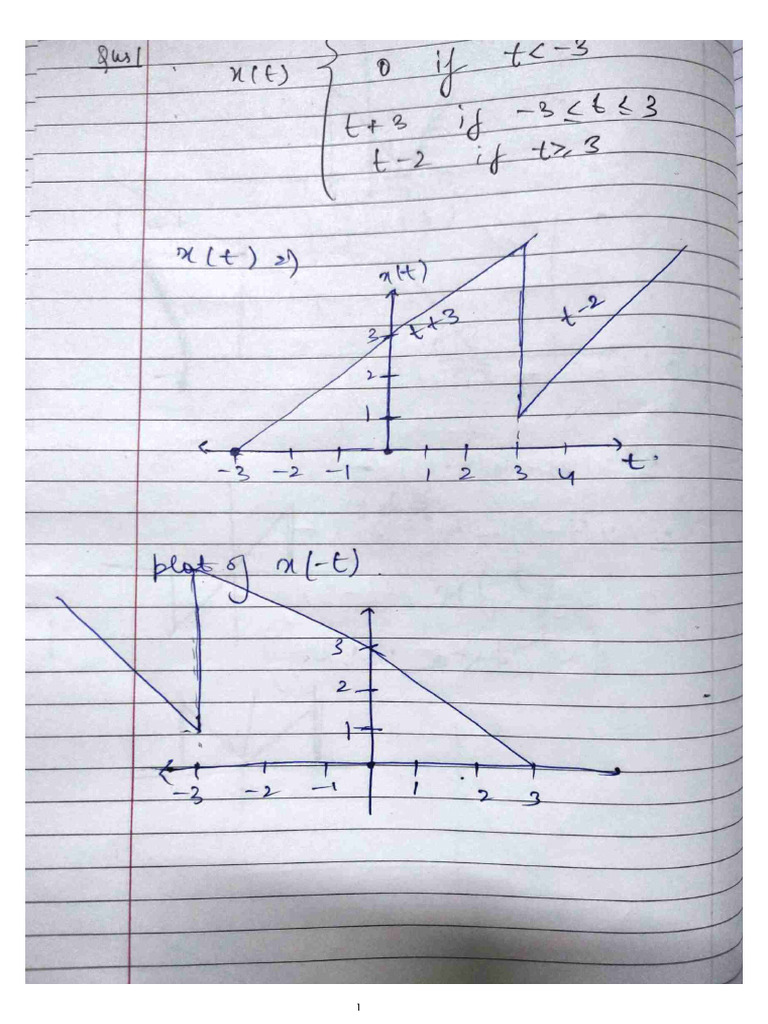 Qus 1
x(t) { 0 if t < -3
t+3 if -3 ≤ t ≤ 3
t-2 if t ≥ 3
x(t) ⇒
x(t)
3 t+3 t-2
2
1
-3 -2 -1 1 2 3 4 t
plot of x(-t)
3
2
1
-3 -2 -1 1 2 3
1